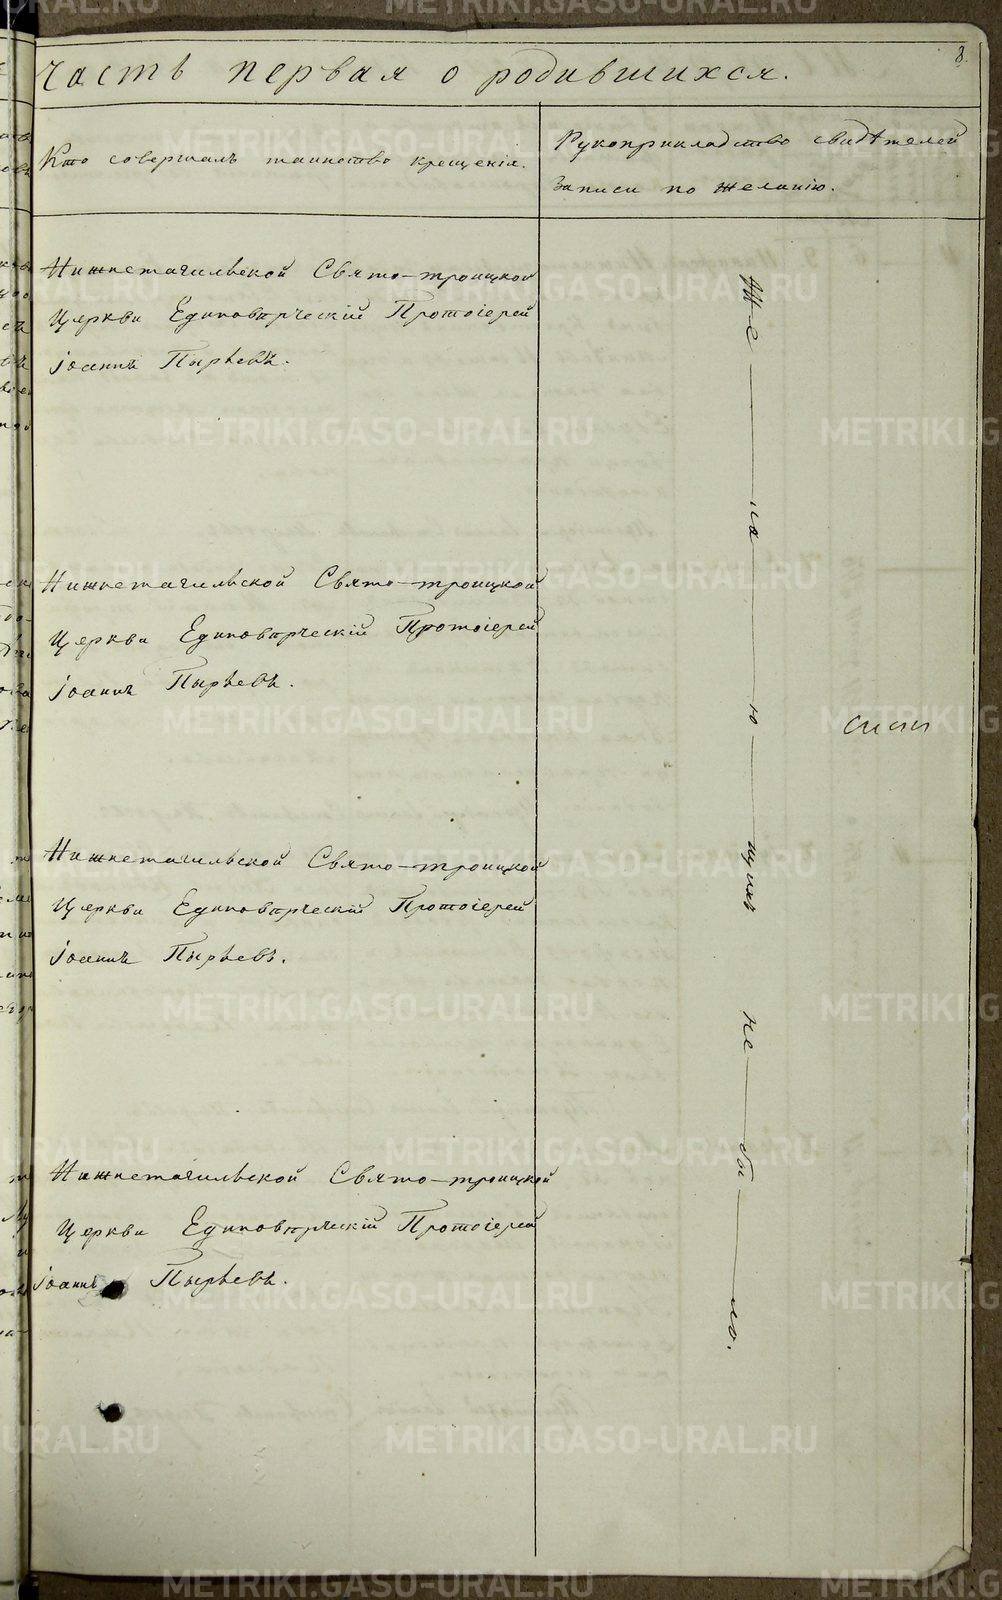 8.
Часть первая о родившихся.
Кто совершалъ таинство крещенія.
Рукоприкладство свидѣтелей
записи по желанію.
Нижнетагильской Свято-троицкой
Церкви Единовѣрческій Протоіерей
Іоаннъ Пырьевъ.
Нижнетагильской Свято-троицкой
Церкви Единовѣрческій Протоіерей
Іоаннъ Пырьевъ.
Нижнетагильской Свято-троицкой
Церкви Единовѣрческій Протоіерей
Іоаннъ Пырьевъ.
Нижнетагильской Свято-троицкой
Церкви Единовѣрческій Протоіерей
Іоаннъ Пырьевъ.
Же—ла—ю—щихъ не—бы—ло.
METRIKI.GASO-URAL.RU